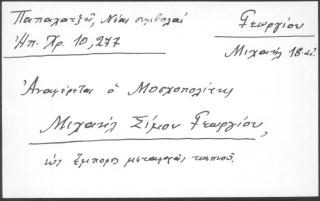 Παπαχατζῆ, Νέαι συμβολαί
Ἠπ. Χρ. 10, 277
Γεωργίου
Μιχαήλ 18.αἰ.
Ἀναφέρεται ὁ Μοσχοπολίτης
Μιχαήλ Σίμου Γεωργίου,
ὡς ἔμπορος μεταφορᾶς